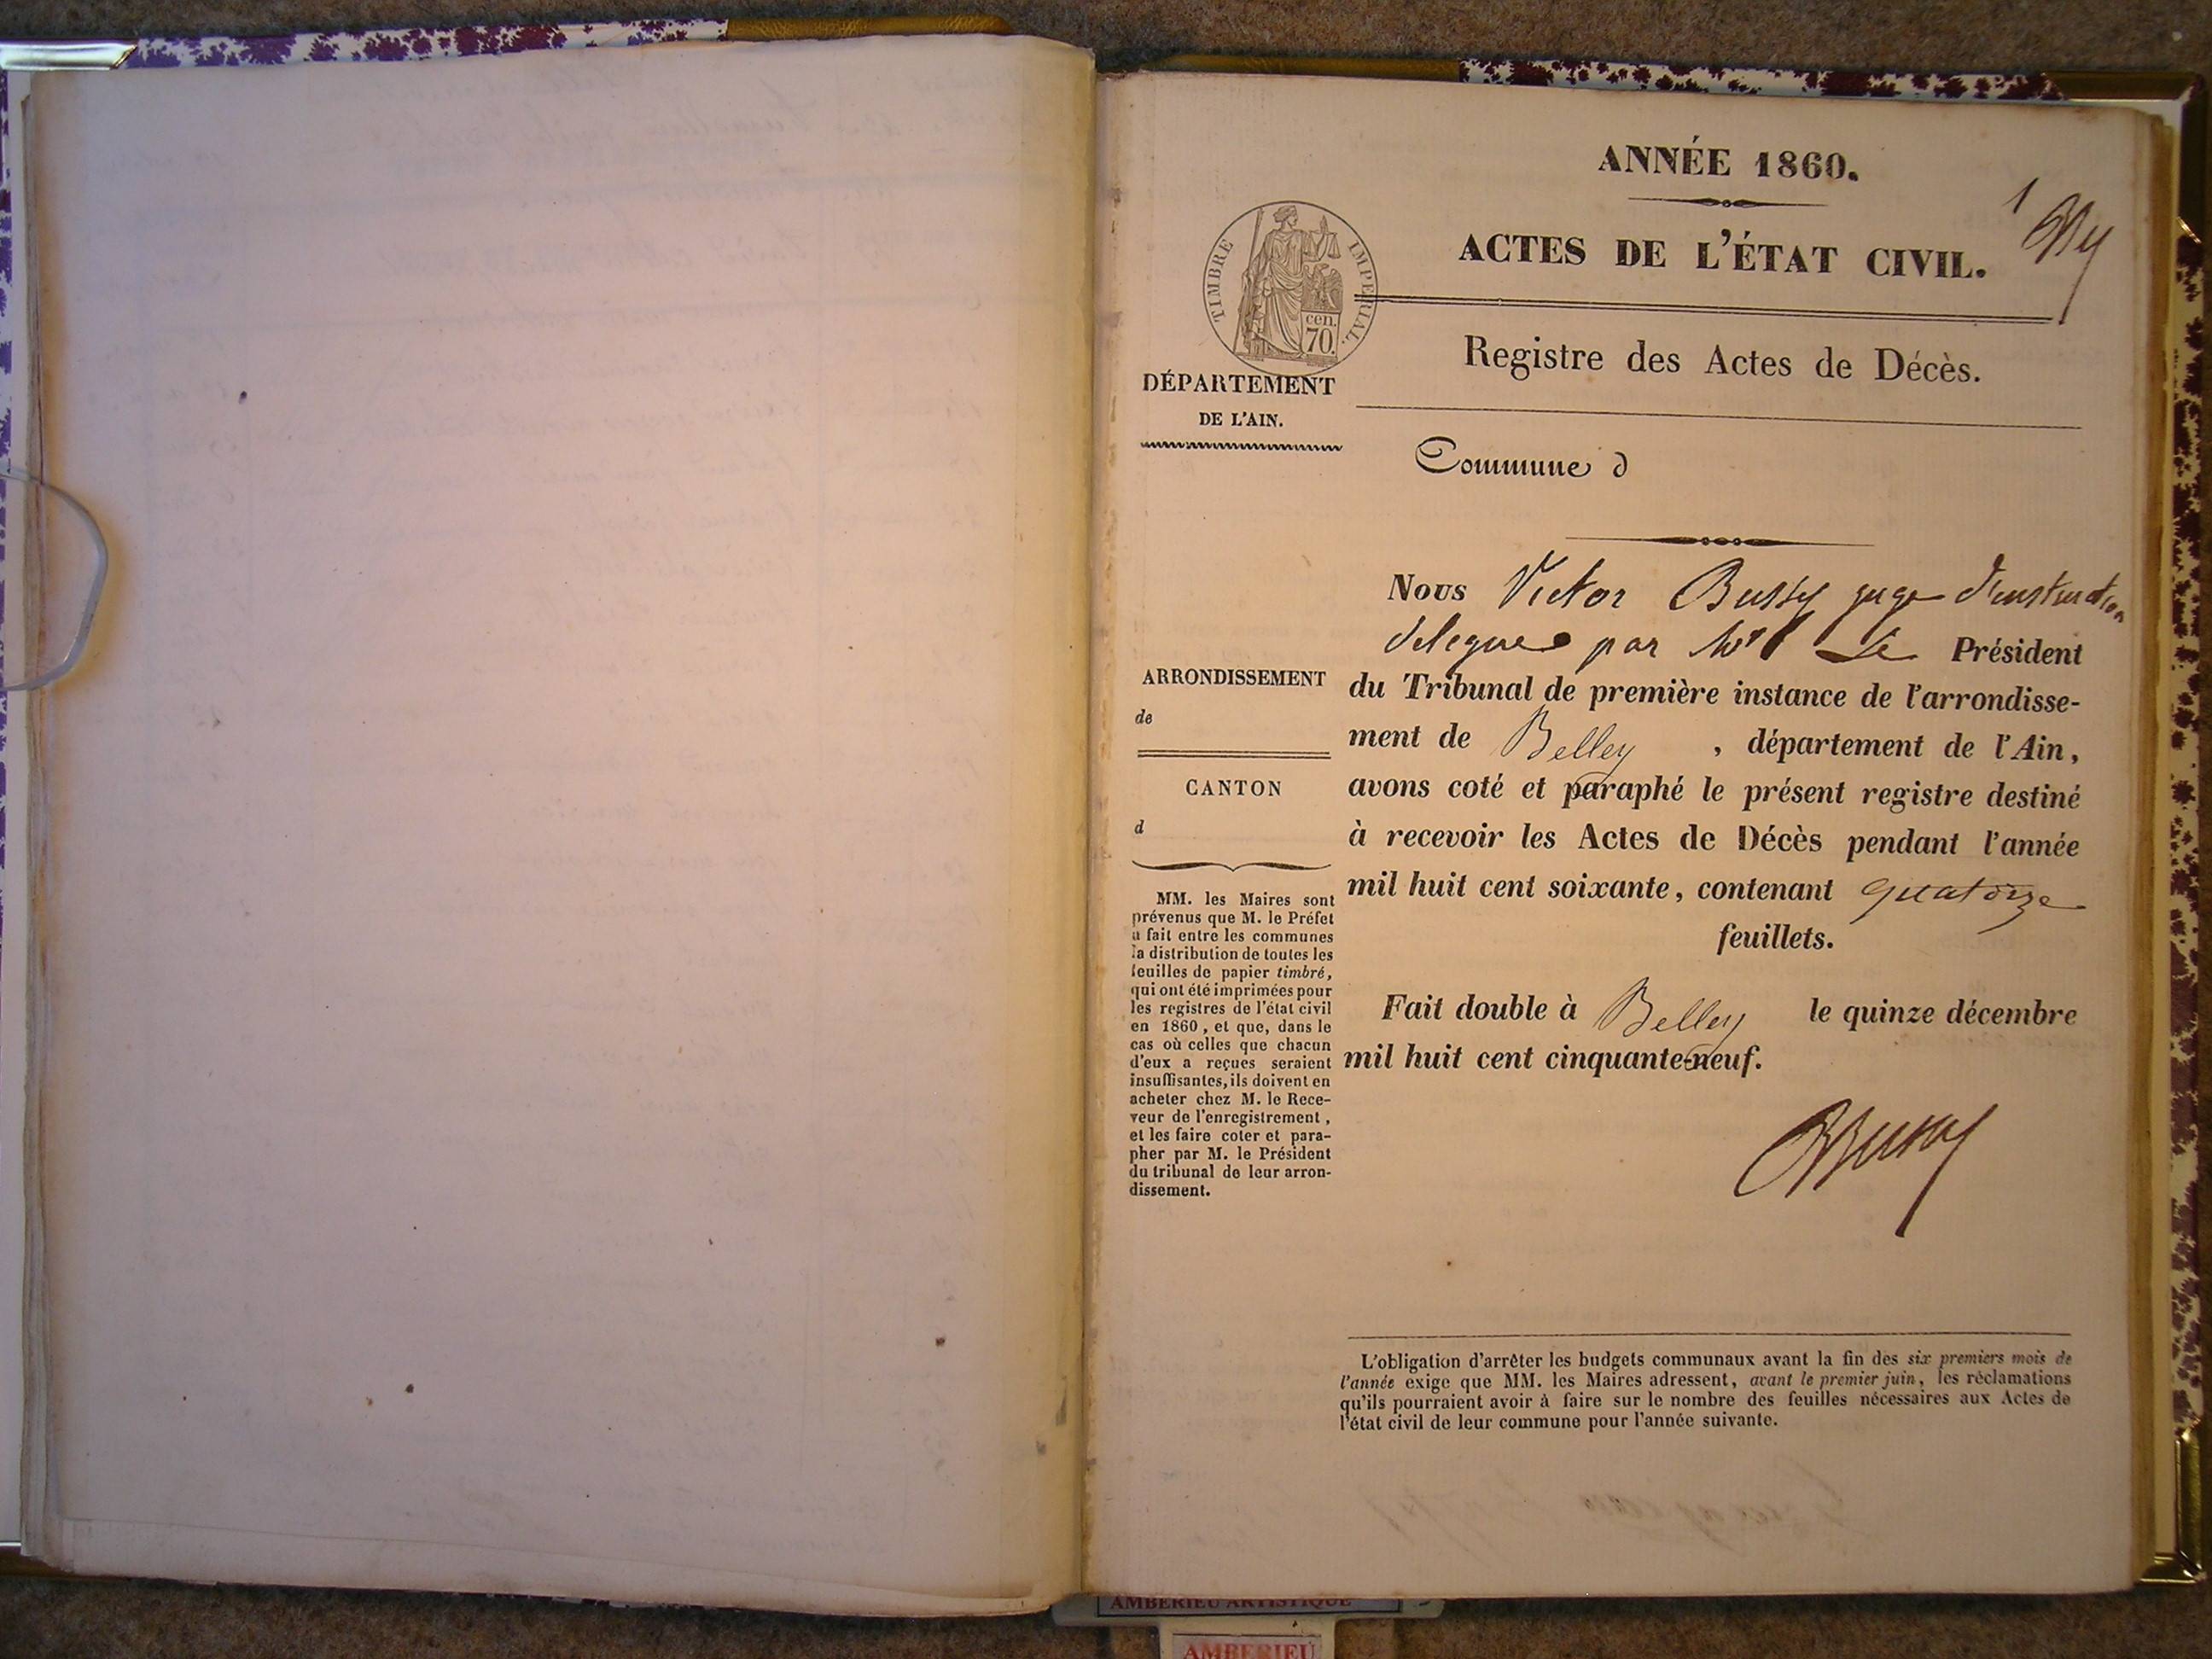 ANNÉE 1860.
1
ACTES DE L'ÉTAT CIVIL.
TIMBRE IMPÉRIAL.
cen.
70.
Registre des Actes de Décès.
DÉPARTEMENT
DE L'AIN.
Commune d
Nous Victor Bussy juge d'instruction
delegue par Mr Le Président
du Tribunal de première instance de l'arrondisse-
ment de Belley , département de l'Ain,
avons coté et paraphé le présent registre destiné
à recevoir les Actes de Décès pendant l'année
mil huit cent soixante, contenant quatorze
feuillets.
Fait double à Belley le quinze décembre
mil huit cent cinquante-neuf.
Bussy
ARRONDISSEMENT
de
CANTON
d
MM. les Maires sont
prévenus que M. le Préfet
a fait entre les communes
la distribution de toutes les
feuilles de papier timbré,
qui ont été imprimées pour
les registres de l'état civil
en 1860, et que, dans le
cas où celles que chacun
d'eux a reçues seraient
insuffisantes, ils doivent en
acheter chez M. le Rece-
veur de l'enregistrement,
et les faire coter et para-
pher par M. le Président
du tribunal de leur arron-
dissement.
L'obligation d'arrêter les budgets communaux avant la fin des six premiers mois de
l'année exige que MM. les Maires adressent, avant le premier juin, les réclamations
qu'ils pourraient avoir à faire sur le nombre des feuilles nécessaires aux Actes de
l'état civil de leur commune pour l'année suivante.
AMBERIEU ARTISTIQUE
AMBERIEU